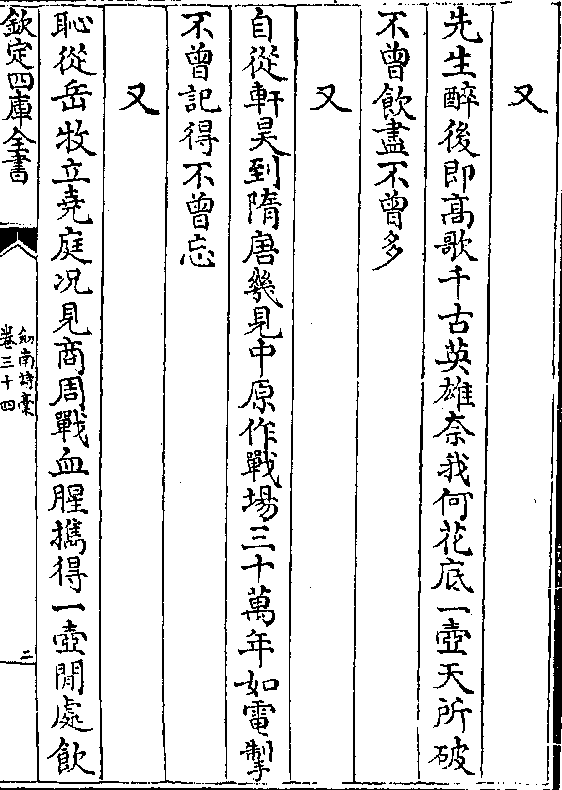 又
先生醉後即髙歌千古英雄奈我何花底一壺天所破
不曽飲盡不曽多
又
自從軒昊到隋唐幾見中原作戰場三十萬年如電掣
不曽記得不曽忘
又
恥從岳牧立堯庭况見商周戰血腥擕得一壺閒處飲
欽定四庫全書
劍南詩槀
卷三十四
二